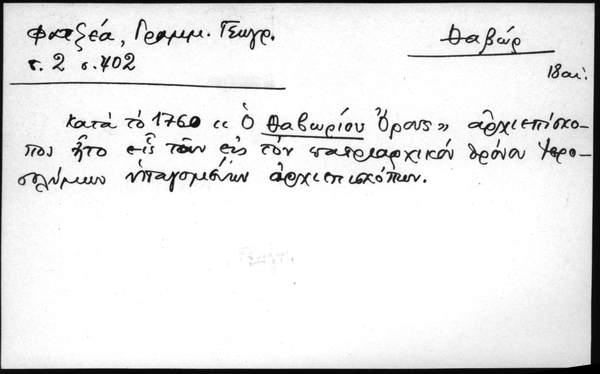 Φατζέα, Γραμμ. Γεωγρ.
τ. 2 σ. 402
Θαβώρ
18 αι.
Κατά το 1760 «Ὁ Θαβωρίου Ὄρους» ἀρχιεπίσκο-
πος ἦτο εἷς τῶν εἰς τόν πατριαρχικόν θρόνον Ἱερο-
σολύμων ὑπαγομένων ἀρχιεπισκόπων.